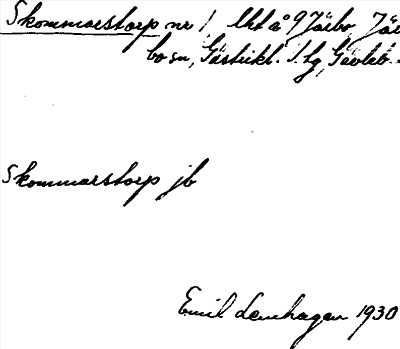 Skommarstorp nr 1, Uht å 9 Järbo, Jär
bo sn, Gästrikl. Ö. tg, Gävleb.
Skommarstorp jb
Emil Lenhagen 1930